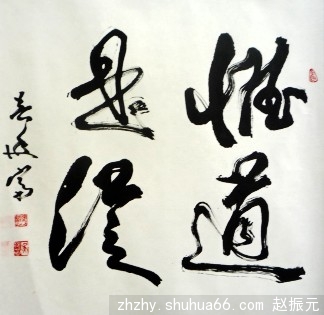 惟道
是從
zhzhy.shuhua66.com 赵振元